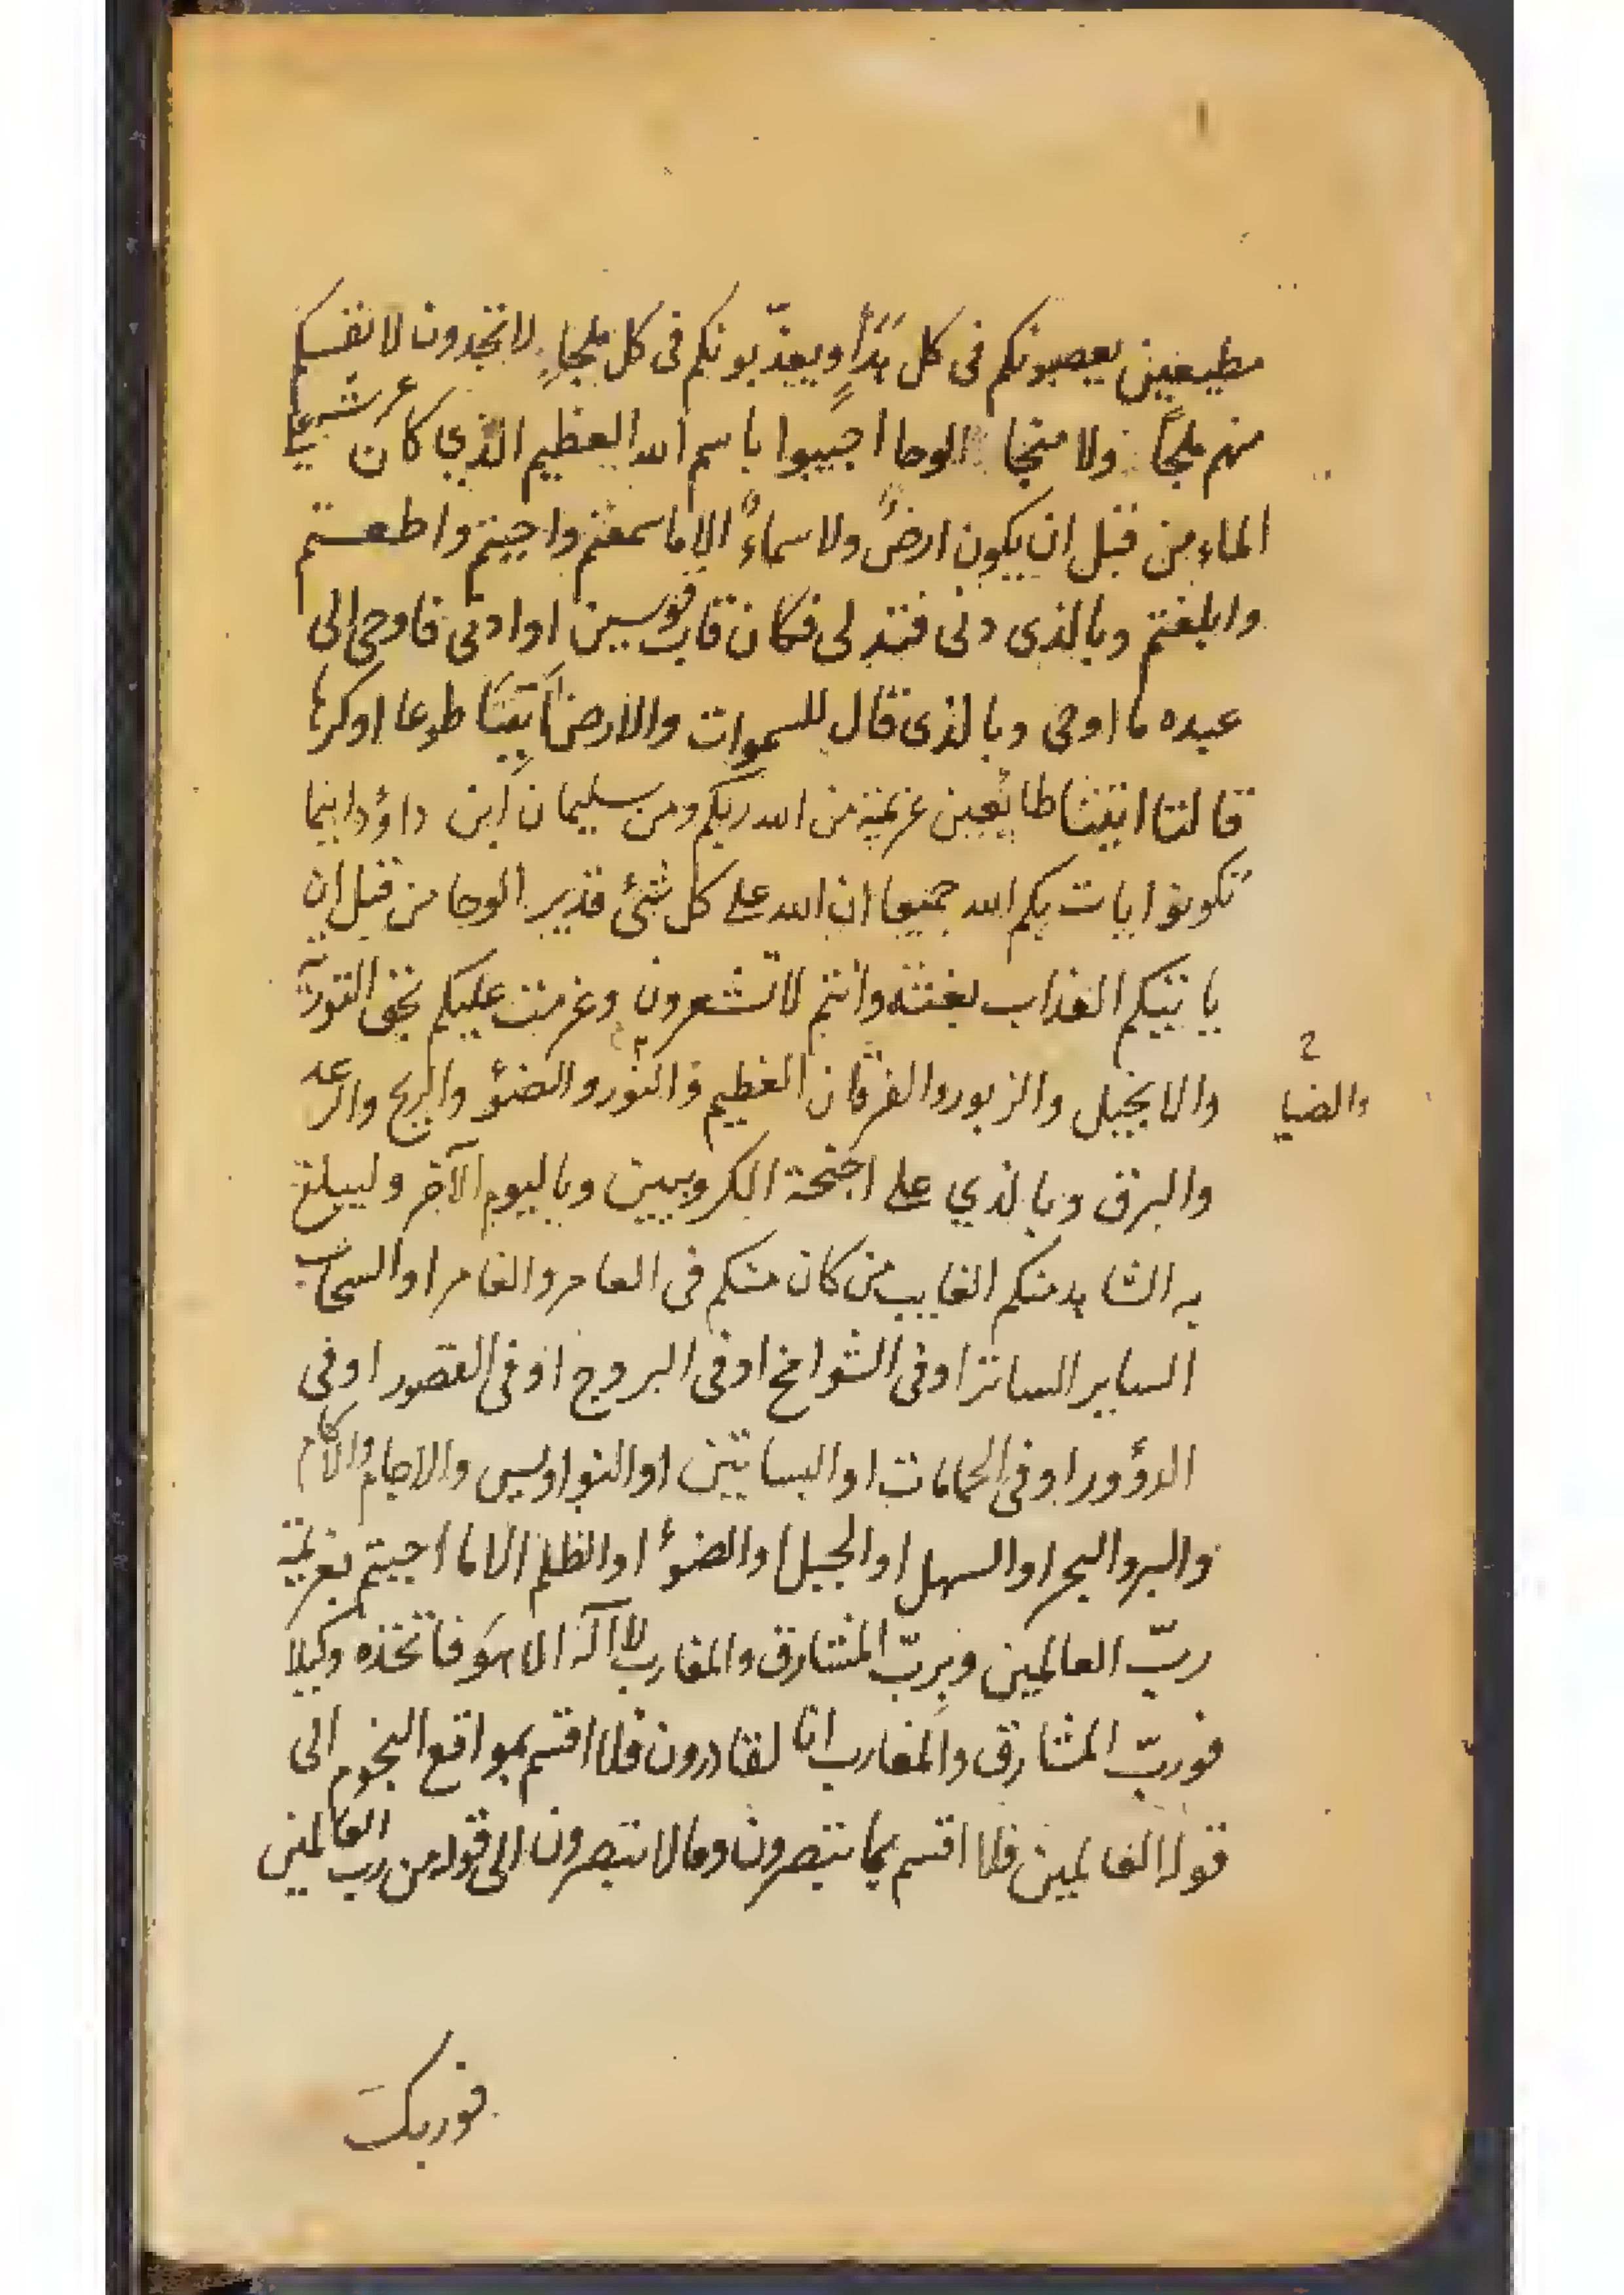 مطيعين يعصبونكم فى كل هذأ ويعذّبونكم فى كل ملجاءٍ لا تجدون لانفسكم
منهم ملجأً ولا منجا الوحا اجيبوا باسم الله العظيم الذي كان عرشه على
الماء من قبل ان يكون ارضٌ ولا سماءٌ الا ما سمعتم واجبتم واطعتم
وابلغتم وبالذى دنى فتدلى فكان قاب قوسين او ادنى فاوحى الى
عبده ما اوحى وبالذى قال للسموات والارض اَئتيَا طوعا او كرها
قالتا اتينا طائعين عزيمة من الله ربكم ومن سليمان ابن داؤد اينما
تكونوا يات بكم الله جميعا ان الله على كل شئ قدير الوحا من قبل ان
ياتيكم العذاب بغتة وانتم لا تشعرون وعزمت عليكم بحق التورية
والانجيل والزبور والفرقان العظيم والنور والضؤ والريح والرعد
والضيا
والبرق وبالذي على اجنحة الكروبيين وباليوم الآخر وليبلغ
به الشاهد منكم الغايب من كان منكم فى العامر والغامر او السحاب
الساير الساتر او فى الشوامخ او فى البروج او فى القصور او فى
الدؤور او فى الحمامات او البساتين او النواويس والاجام والاكام
والبر والبحر او السهل او الجبل او الضوأ او الظلم الا ما اجبتم بعزيمة
ربّ العالمين وبربّ المشارق والمغارب لا اله الا هو فاتخذه وكيلا
فوربّ المشارق والمغارب انا لقادرون فلا اقسم بمواقع النجوم الى
قوله العالمين فلا اقسم بما تبصرون وما لا تبصرون الى قوله من رب العالمين
فوربك